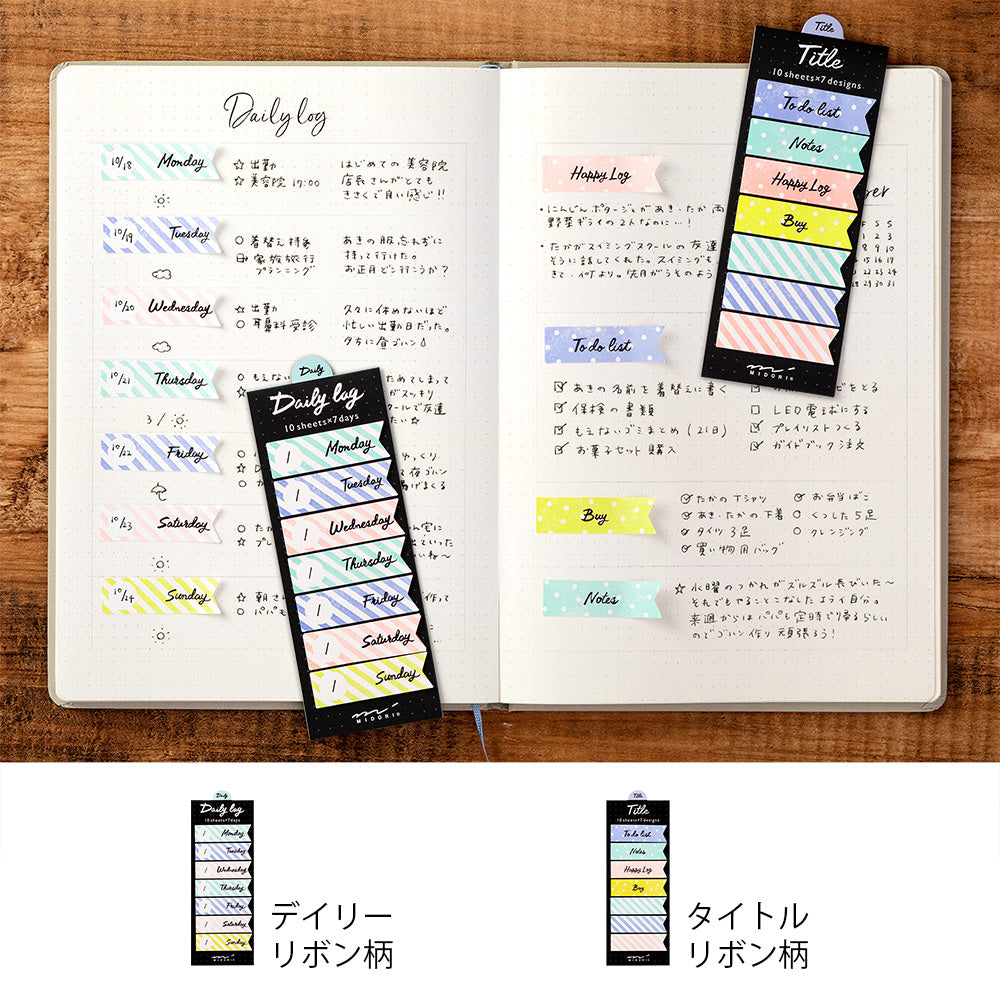 Daily log
10/18 Monday
☆ 出勤
☆ 美容院 17:00
はじめての 美容院
店長さんがとても
きさくで良い感じ!!
10/19 Tuesday
○ 着替え持参
家族旅行
プランニング
あきの服忘れずに
持って行けた。
お正月どこ行こうか?
10/20 Wednesday
☆ 出勤
○ 耳鼻科受診
久々に休めないほど
忙しい出勤日だった。
夕方に昼ゴハン
10/21 Thursday
○ もえない
ためてしまって
スッキリ
クールで友達
たい☆
3 /
10/22 Friday
ゆっくり
夜ゴハン
まくる
10/23 Saturday
○ たか
☆ プレ
出ていった
いね〜
10/24 Sunday
☆ 朝
○ パパも
作って
Daily
Daily log
10 sheets×7 days
/ Monday
/ Tuesday
/ Wednesday
/ Thursday
/ Friday
/ Saturday
/ Sunday
MIDORI®
Happy Log
・にんじんポタージュがあき・たか両
野菜ギライの2人なのに…!
・たかがスイミングスクールの友達
そうに話してくれた。スイミングも
きて、何より。先月がうそのよう
To do list
あきの名前を着替えに書く
保検の書類
もえないゴミまとめ (21日)
お菓子セット購入
ビをとる
LED電球にする
プレイリストつくる
ガイドブック注文
Buy
たかのTシャツ
あき・たかの下着
タイツ 3足
買い物用バッグ
お弁当ばこ
くつした5足
クレンジング
Notes
☆ 水曜のつかれがズルズル長びいた〜
それでもやることこなしたエライ自分。
来週からはパパも定時で帰るらしい
のでゴハン作り頑張ろう!
ver
F S S
1 2 3
8 9 10
15 16 17
22 23 24
29 30 31
Title
Title
10 sheets×7 designs
To do list
Notes
Happy Log
Buy
MIDORI®
Daily
Daily log
10 sheets×7 days
/ Monday
/ Tuesday
/ Wednesday
/ Thursday
/ Friday
/ Saturday
/ Sunday
MIDORI®
デイリー
リボン柄
Title
Title
10 sheets×7 designs
To do list
Notes
Happy Log
Buy
MIDORI®
タイトル
リボン柄